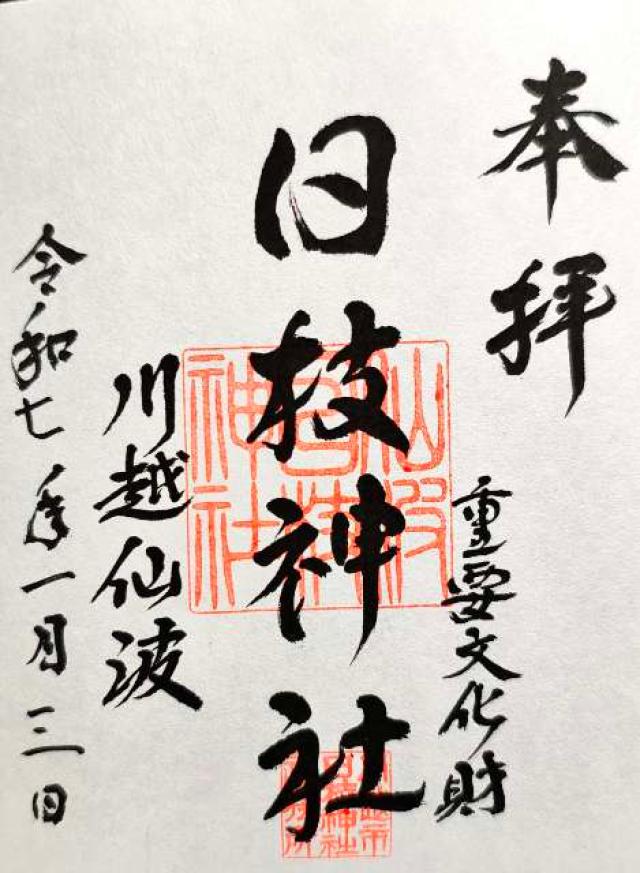 奉拝
重要文化財
日枝神社
仙波
日枝
神社
川越仙波
令和七年一月三日